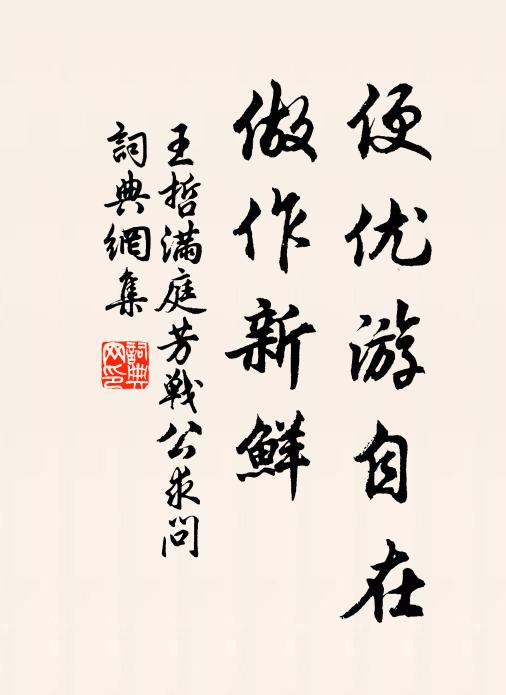 便优游自在
做作新鲜
王哲满庭芳战公求问
詞典網集
詞典网印